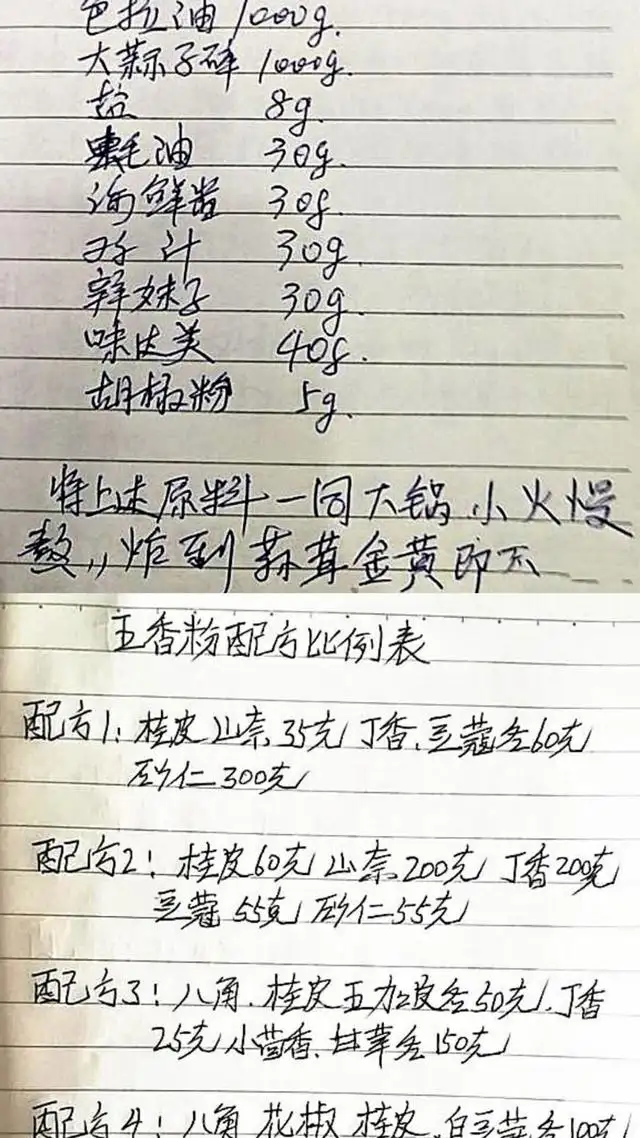 色拉油 1000g.
大蒜子碎 1000g.
盐 8g.
蚝油 30g.
海鲜酱 30g.
鸡汁 30g.
辣妹子 30g.
味达美 40g.
胡椒粉 5g.
将上述原料一同大锅小火慢
熬,,炸到蒜茸金黄即可
五香粉配方比例表
配方1: 桂皮 山奈 35克 丁香、豆蔻各60克
砂仁300克
配方2: 桂皮60克 山奈200克 丁香200克
豆蔻 55克 砂仁55克
配方3: 八角、桂皮 五加皮各50克、丁香
25克 小茴香、甘草各150克
配方4: 八角 花椒 桂皮、白豆蔻各100克